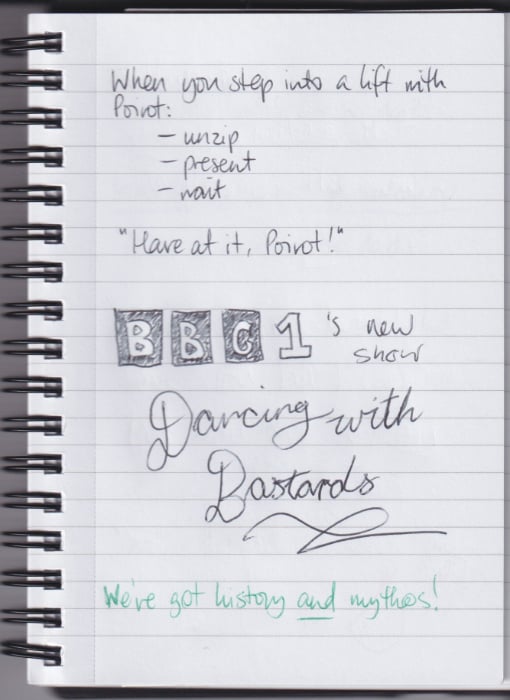 When you step into a lift with
Poirot:
– unzip
– present
– wait
"Have at it, Poirot!"
BBC1's new
show
Dancing with
Bastards
We've got history and mythos!